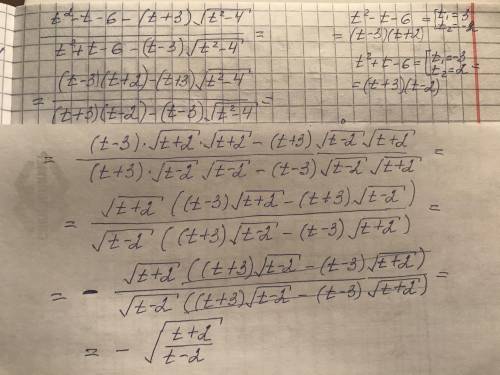 t²-t-6-(t+3)√(t²-4) / t²+t-6-(t-3)√(t²-4) =
= (t-3)(t+2)-(t+3)√(t²-4) / (t+3)(t-2)-(t-3)√(t²-4) =
t²-t-6 = [t₁=3
= (t-3)(t+2)
t²+t-6 = [t₁=-3 t₂=2 =
= (t+3)(t-2)
= (t-3)·√(t+2)·√(t+2) - (t+3)√(t-2)√(t+2) / (t+3)·√(t-2)√(t-2) - (t-3)√(t-2)√(t+2) =
= √(t+2) ((t-3)√(t+2) - (t+3)√(t-2)) / √(t-2) ((t+3)√(t-2) - (t-3)√(t+2)) =
= - √(t+2) ((t+3)√(t-2) - (t-3)√(t+2)) / √(t-2) ((t+3)√(t-2) - (t-3)√(t+2)) =
= - √((t+2)/(t-2))